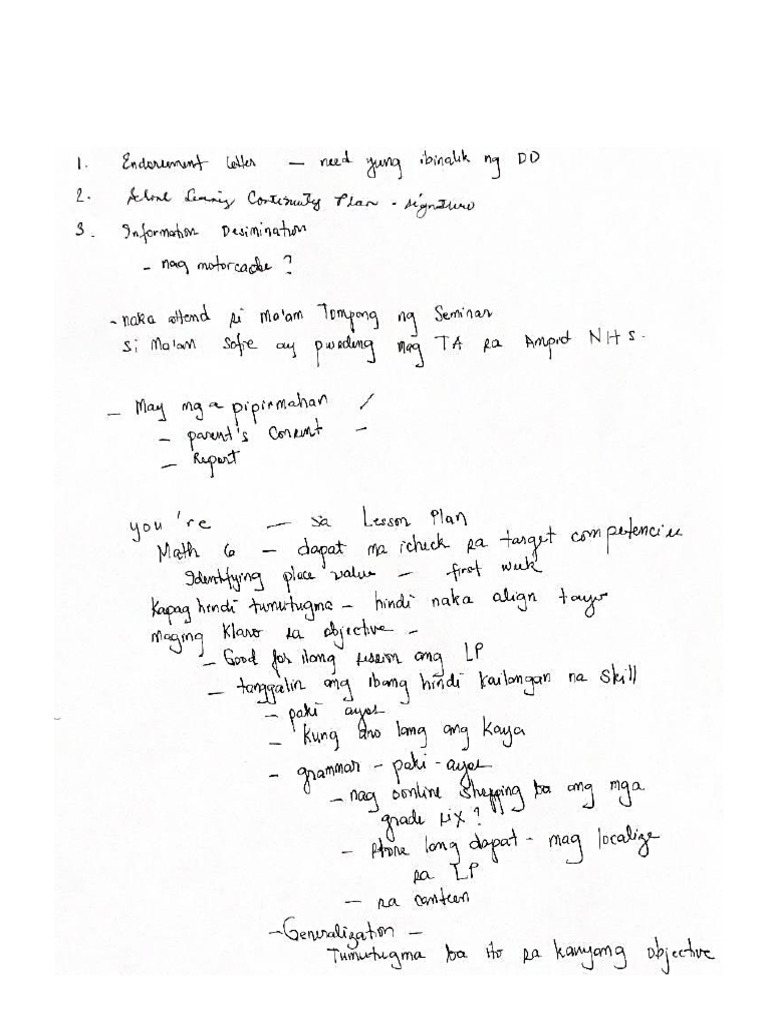 1. Endorsement letter — need yung ibinalik ng DD
2. School Learning Continuity Plan - signature
3. Information Desimination
- nag motorcade?
- naka attend si Ma'am Tompong ng Seminar
Si Ma'am Sofie ay pwedeng mag TA sa Ampid NHS.
— May mga pipirmahan /
— parent's Consent —
— Report
you're — sa Lesson Plan
Math 6 — dapat ma icheck sa target competencies
Identifying place value — first week
Kapag hindi tumutugma — hindi naka align tayo
maging klaro sa objective —
— Good for ilang session ang LP
— tanggalin ang ibang hindi kailangan na skill
— paki ayos
— Kung ano lang ang kaya
— grammar — paki-ayos
— nag oonline shopping ba ang mga
grade six?
— store lang dapat - mag localize
sa LP
— sa canteen
— Generalization —
Tumutugma ba ito sa kanyang objective